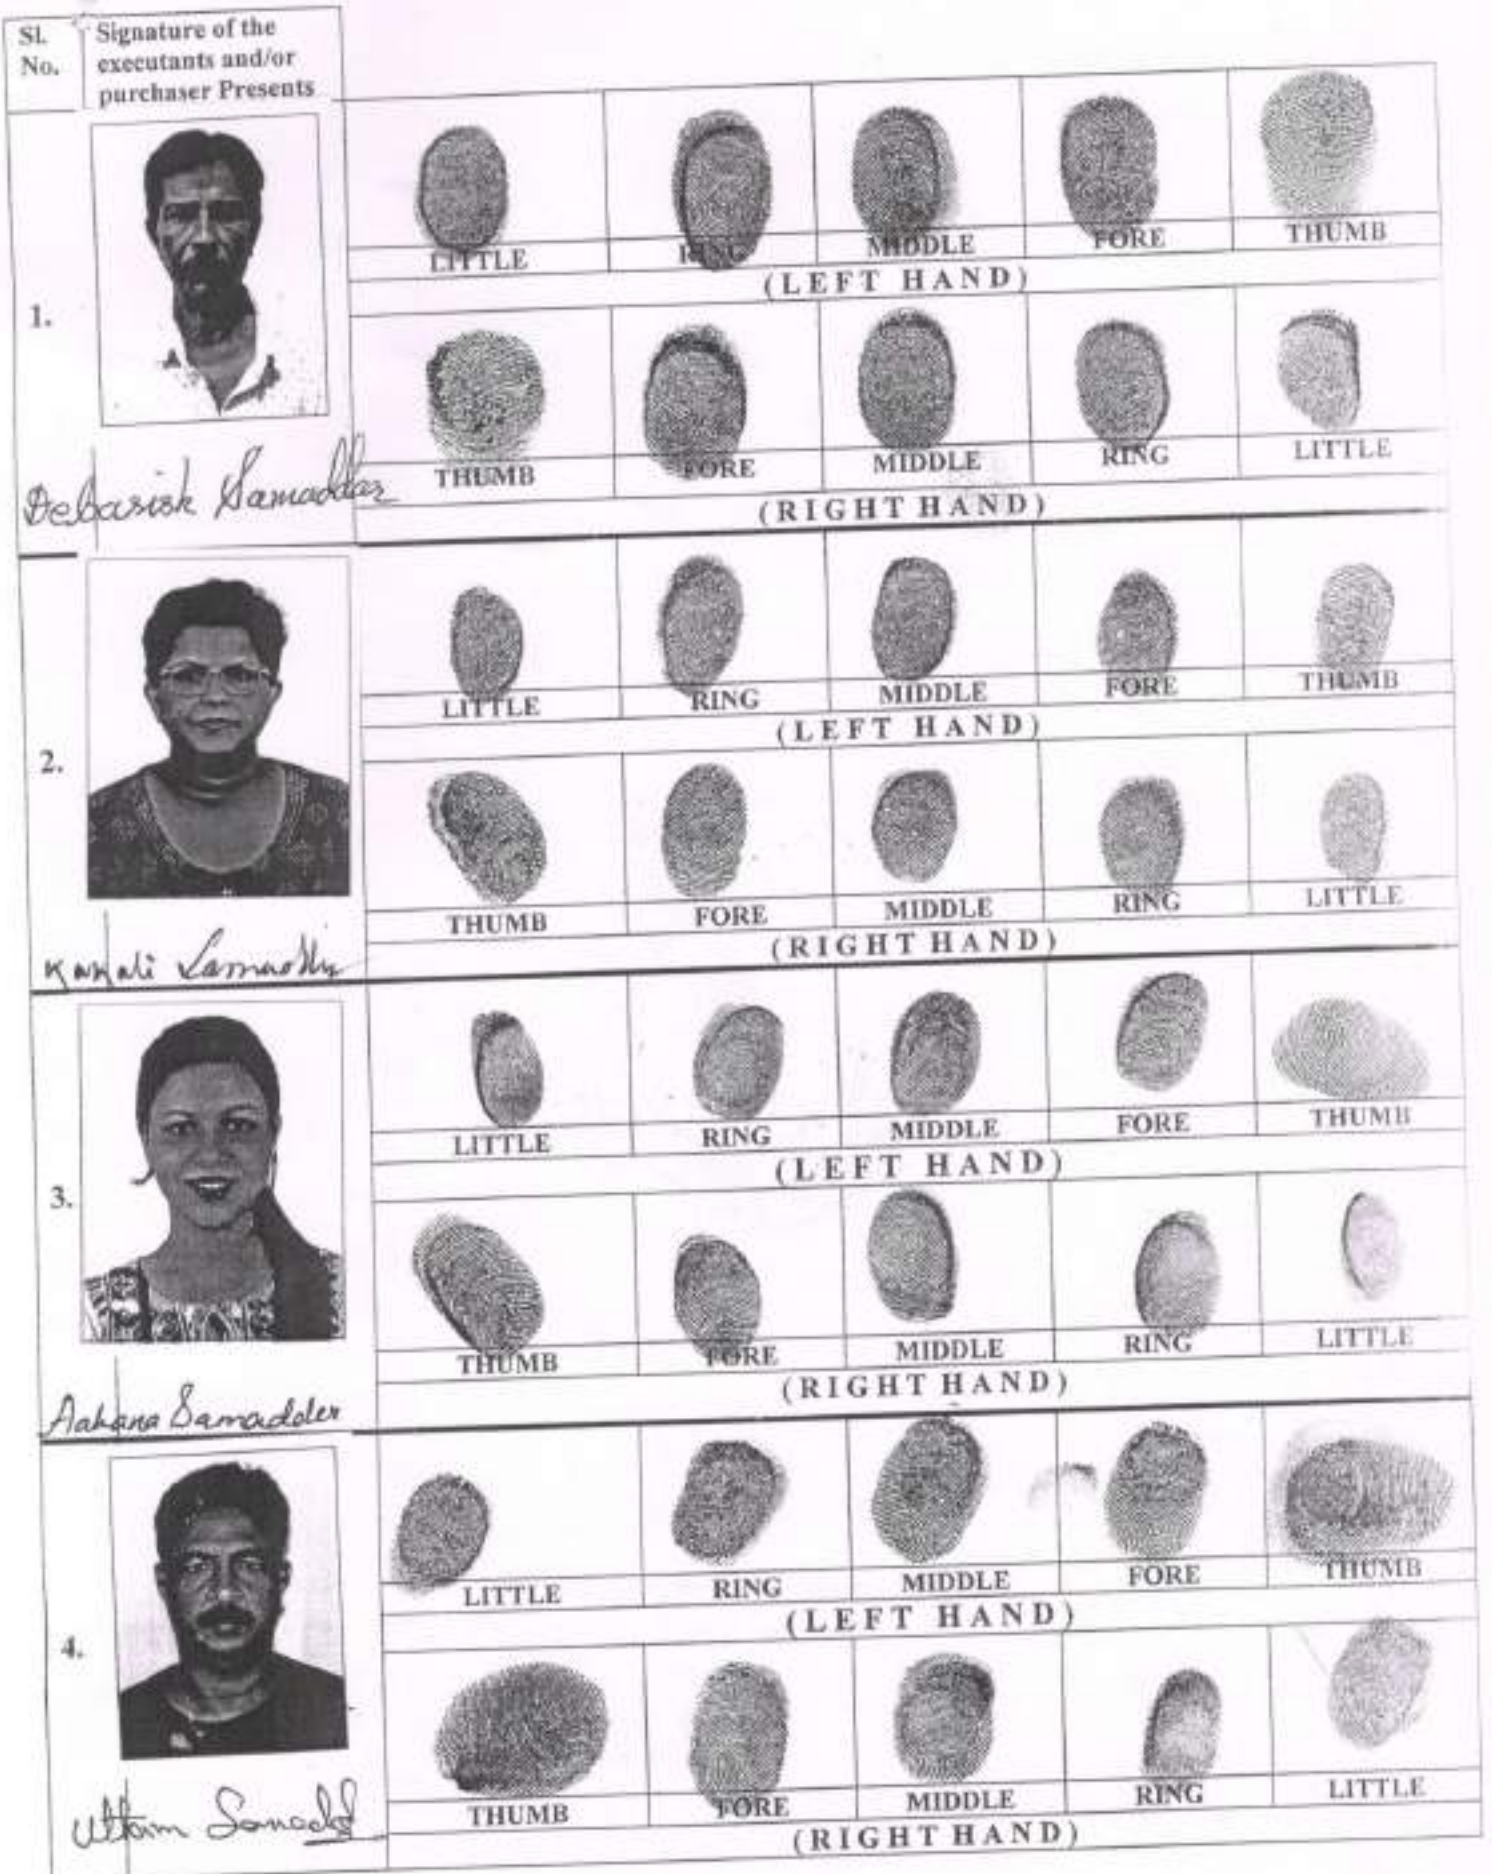 Sl. No.
Signature of the executants and/or purchaser Presents
LITTLE RING MIDDLE FORE THUMB
(LEFT HAND)
1.
THUMB FORE MIDDLE RING LITTLE
(RIGHT HAND)
Debasish Samaddar
LITTLE RING MIDDLE FORE THUMB
(LEFT HAND)
2.
THUMB FORE MIDDLE RING LITTLE
(RIGHT HAND)
Kakali
LITTLE RING MIDDLE FORE THUMB
(LEFT HAND)
3.
THUMB FORE MIDDLE RING LITTLE
(RIGHT HAND)
Aahana Samadder
LITTLE RING MIDDLE FORE THUMB
(LEFT HAND)
4.
THUMB FORE MIDDLE RING LITTLE
(RIGHT HAND)
Uttam